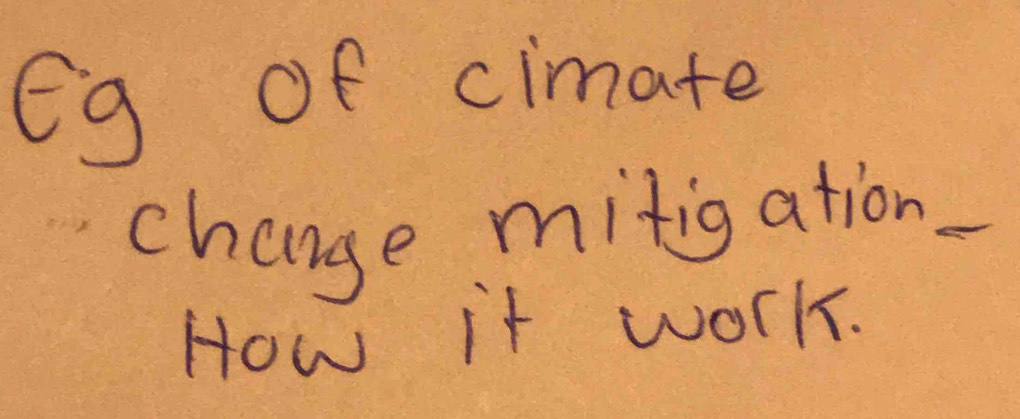 Eg of cimate
change mitigation_
How it work.